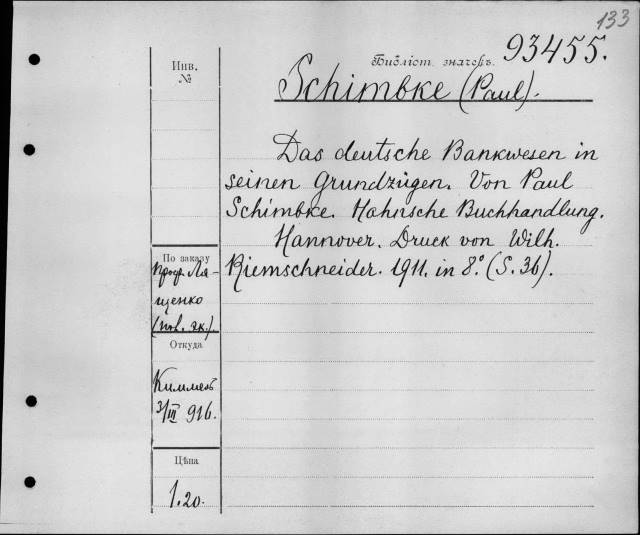 133
Библіот. значекъ. 93455.
Инв.
№
Schimbke (Paul).
Das deutsche Bankwesen in
seinen Grundzügen. Von Paul
Schimbke. Hahnsche Buchhandlung.
Hannover. Druck von Wilh.
Riemschneider. 1911. in 8º. (S. 36).
По заказу
Проф. Ля-
щенко
Откуда
Киммель
3/III 916.
Цѣна
1.20.